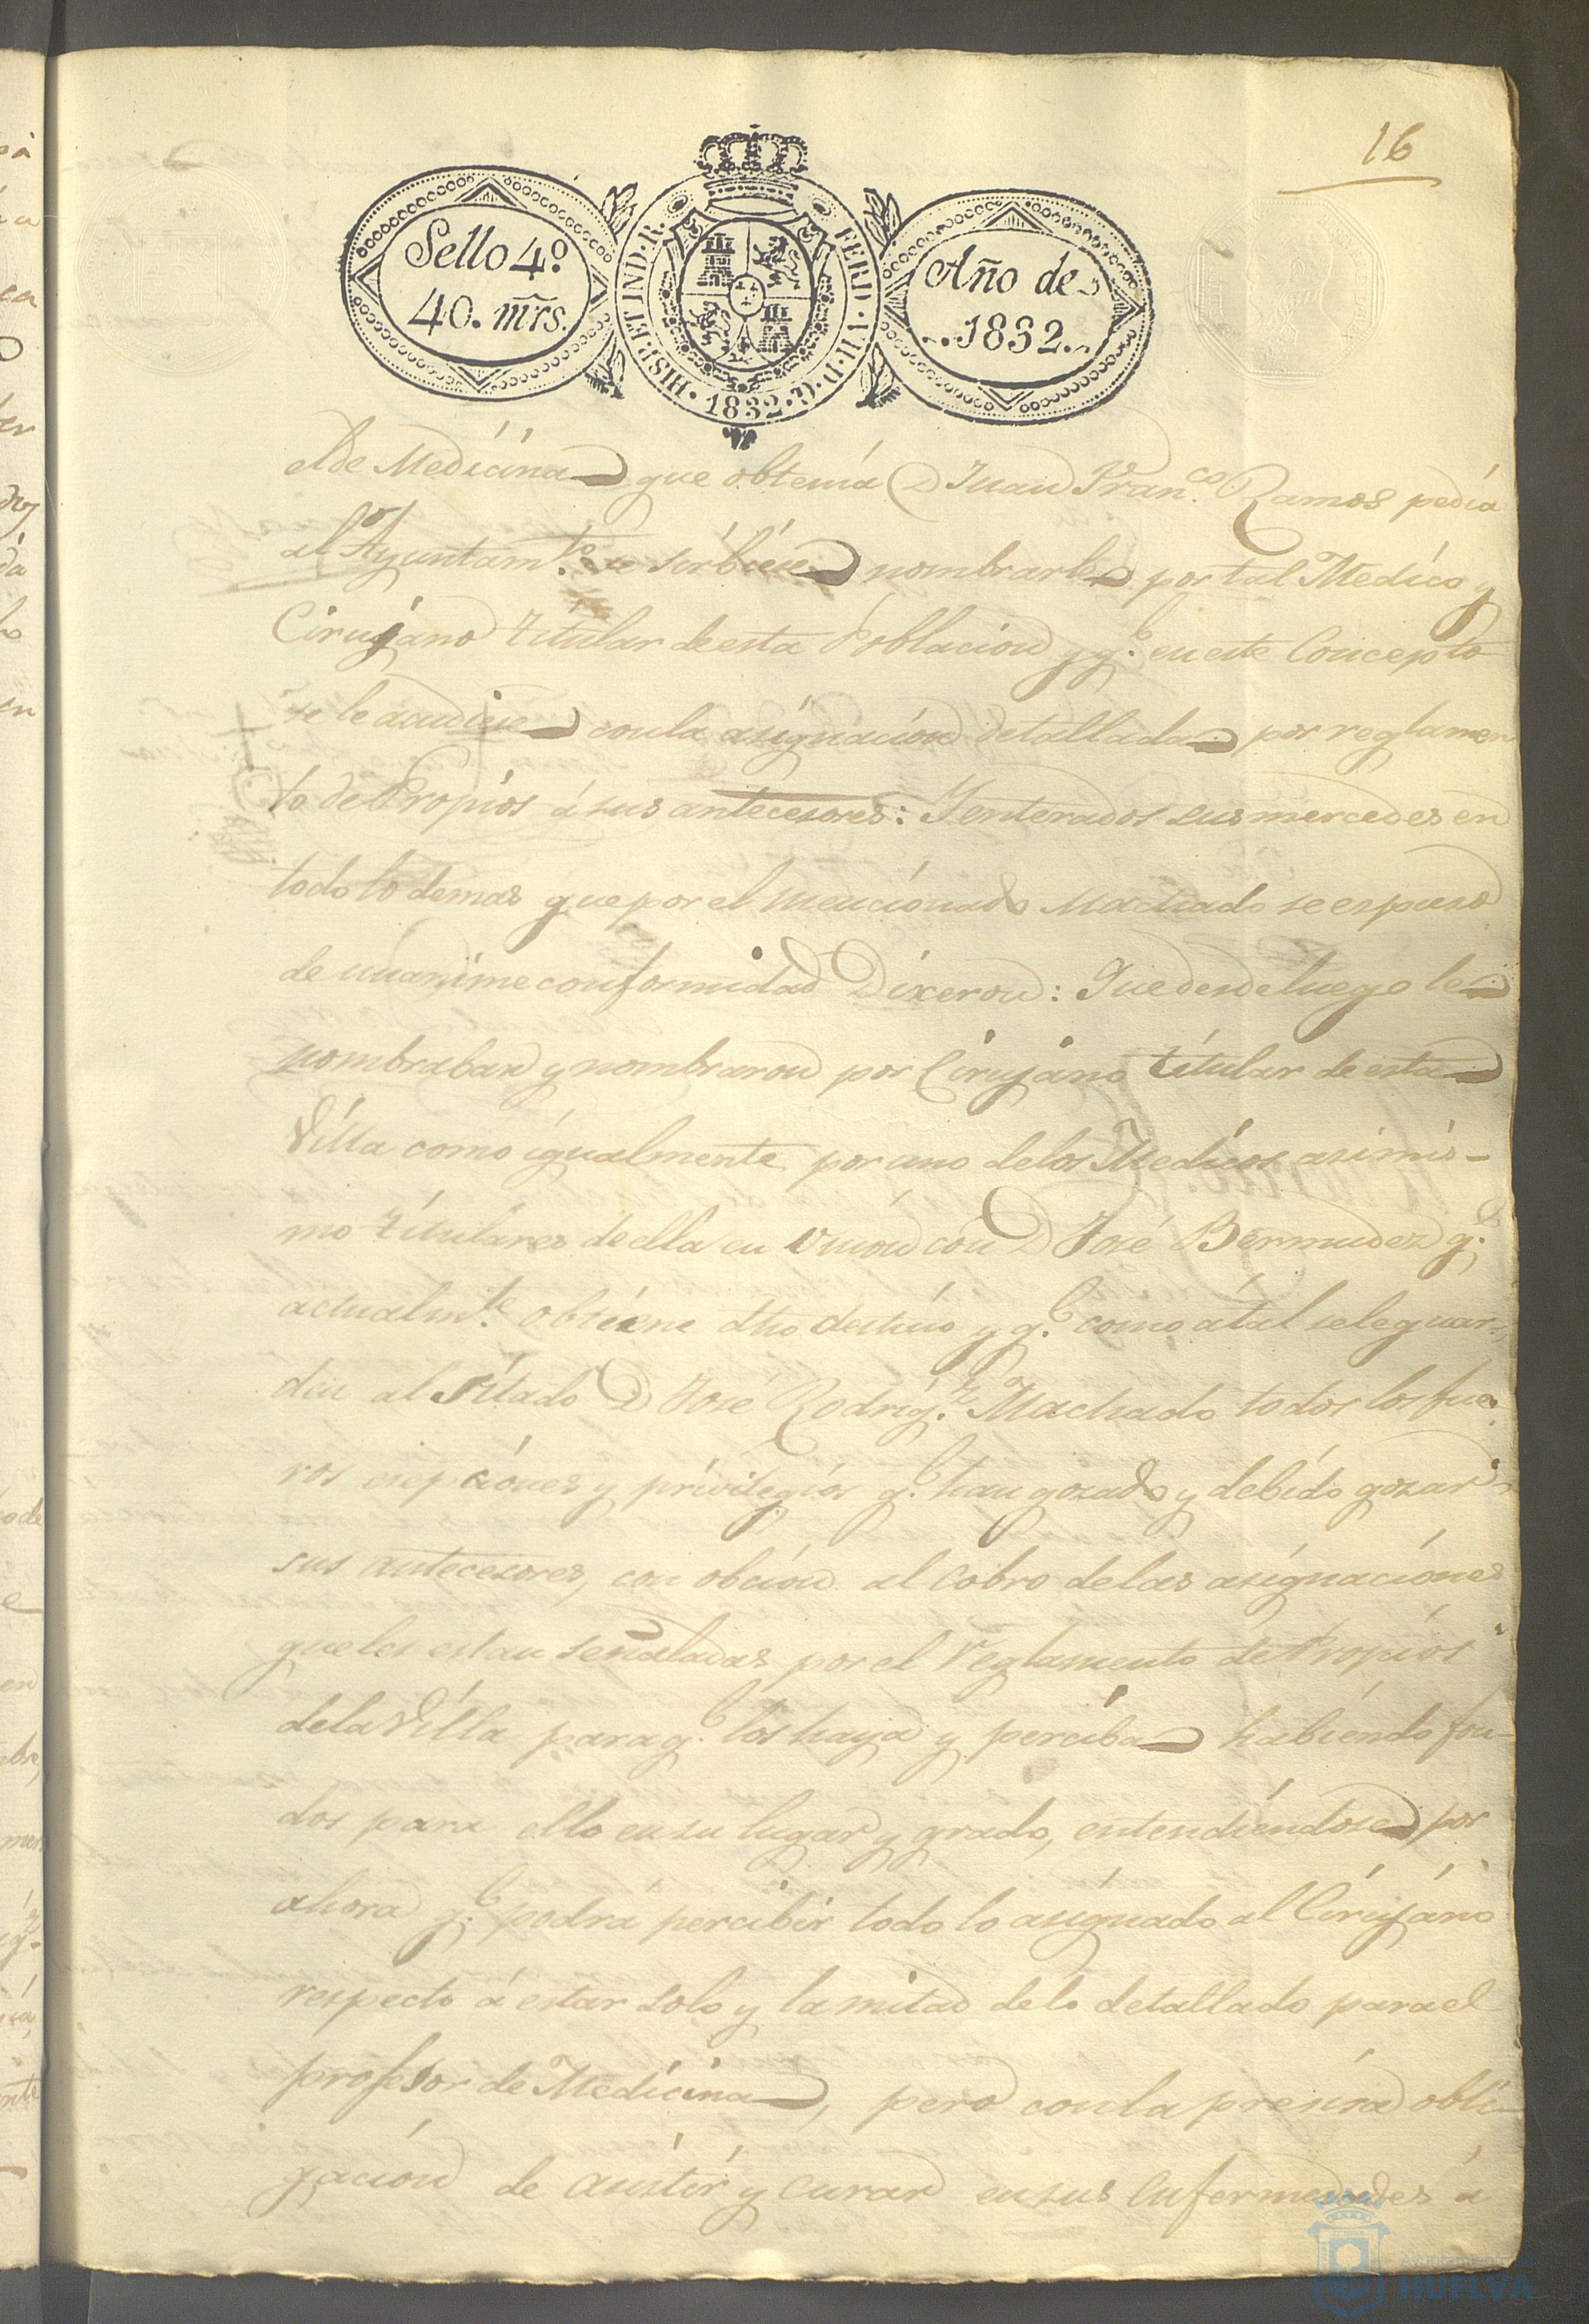 16
Sello 4º.
40. mr̃s.
HISP. ET IND. R. FERD. VII. D. G. 1832
Año de
1832.
el de Medicina que obtenia D Juan Fran.co Ramos pedia
al Ayuntam.to se sirbiese nombrarle por tal Medico y
Cirujano titular de esta Poblacion y q.e en este Concepto
se le acudiese con la asignacion detallada por reglamen
to de Propios á sus antecesores: Y enterados sus mercedes en
todo lo demas que por el mencionado Machado se espuso
de unanime conformidad Dixeron: Que desde luego le
nombraban y nombraron por Cirujano titular de esta
Villa como igualmente por uno de los Medicos asimis-
mo titulares de ella en union con D José Bermudez q.e
actualm.te obtiene dho destino y q.e como á tal se le guar-
den al sitado D José Rodrig.z Machado todos los fue
ros esepciones y privilegios q.e han gozado y debido gozar
sus antecesores, con obcion al cobro de las asignaciones
que les estan señaladas por el reglamento de Propios
de la Villa para q.e los haya y perciba habiendo fon-
dos para ello en su lugar y grado, entendiendose por
ahora q.e podrá percibir todo lo asignado al Cirujano
respecto á estar solo y la mitad de lo detallado para el
profesor de Medicina, pero con la presisa obli-
gacion de asistir y curar en sus enfermedades á
Ayuntamiento de
HUELVA